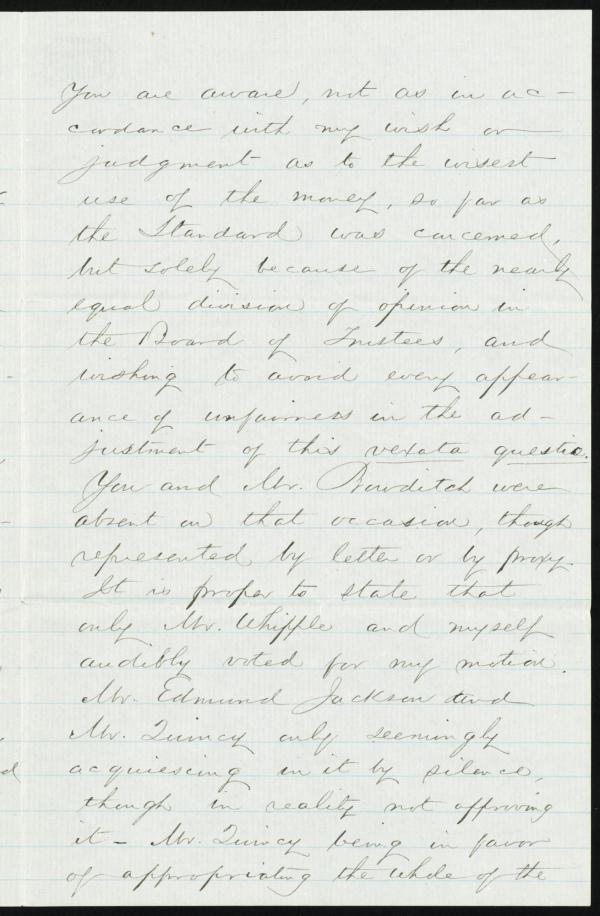 You are aware, not as in ac-
cordance with my wish or
judgment as to the wisest
use of the money, so far as
the Standard was concerned,
but solely because of the nearly
equal division of opinion in
the Board of Trustees, and
wishing to avoid every appear-
ance of unfairness in the ad-
justment of this vexata questio.
You and Mr. Bowditch were
absent on that occasion, though
represented by letter or by proxy.
It is proper to state that
only Mr. Whipple and myself
audibly voted for my motion.
Mr. Edmund Jackson and
Mr. Quincy only seemingly
acquiescing in it by silence,
though in reality not approving
it - Mr. Quincy being in favor
of appropriating the whole of the